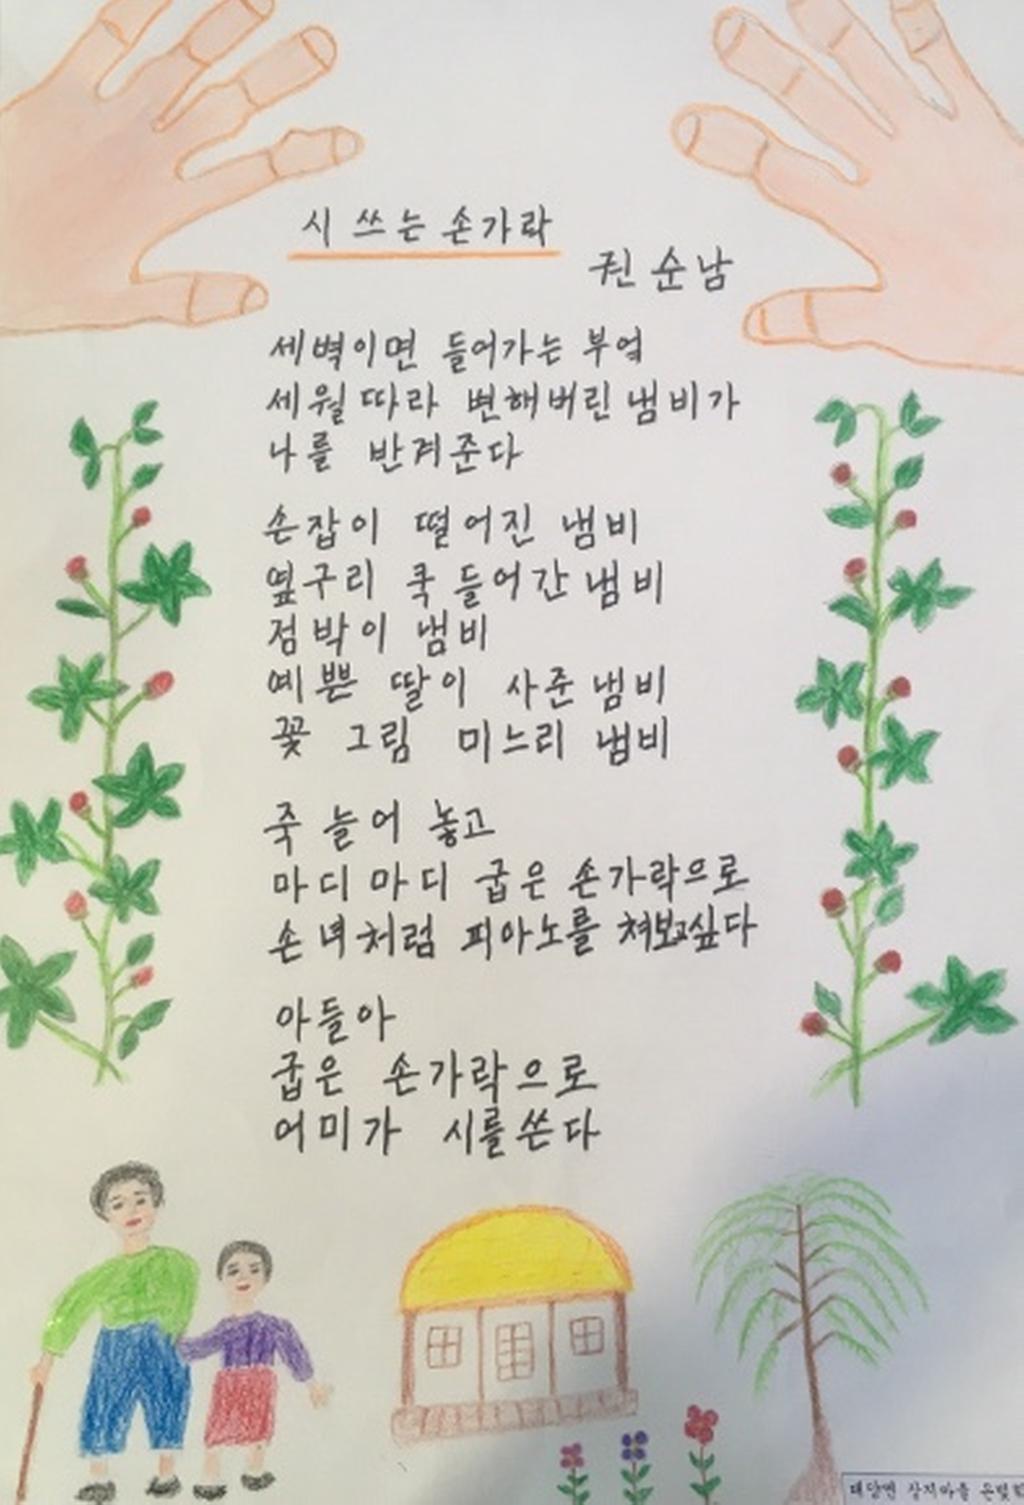 시 쓰는 손가락
권순남
세벽이면 들어가는 부엌
세월 따라 변해버린 냄비가
나를 반겨준다
손잡이 떨어진 냄비
옆구리 쿡 들어간 냄비
점박이 냄비
예쁜 딸이 사준 냄비
꽃 그림 미느리 냄비
죽 늘어 놓고
마디 마디 굽은 손가락으로
손녀처럼 피아노를 쳐보고싶다
아들아
굽은 손가락으로
어미가 시를쓴다